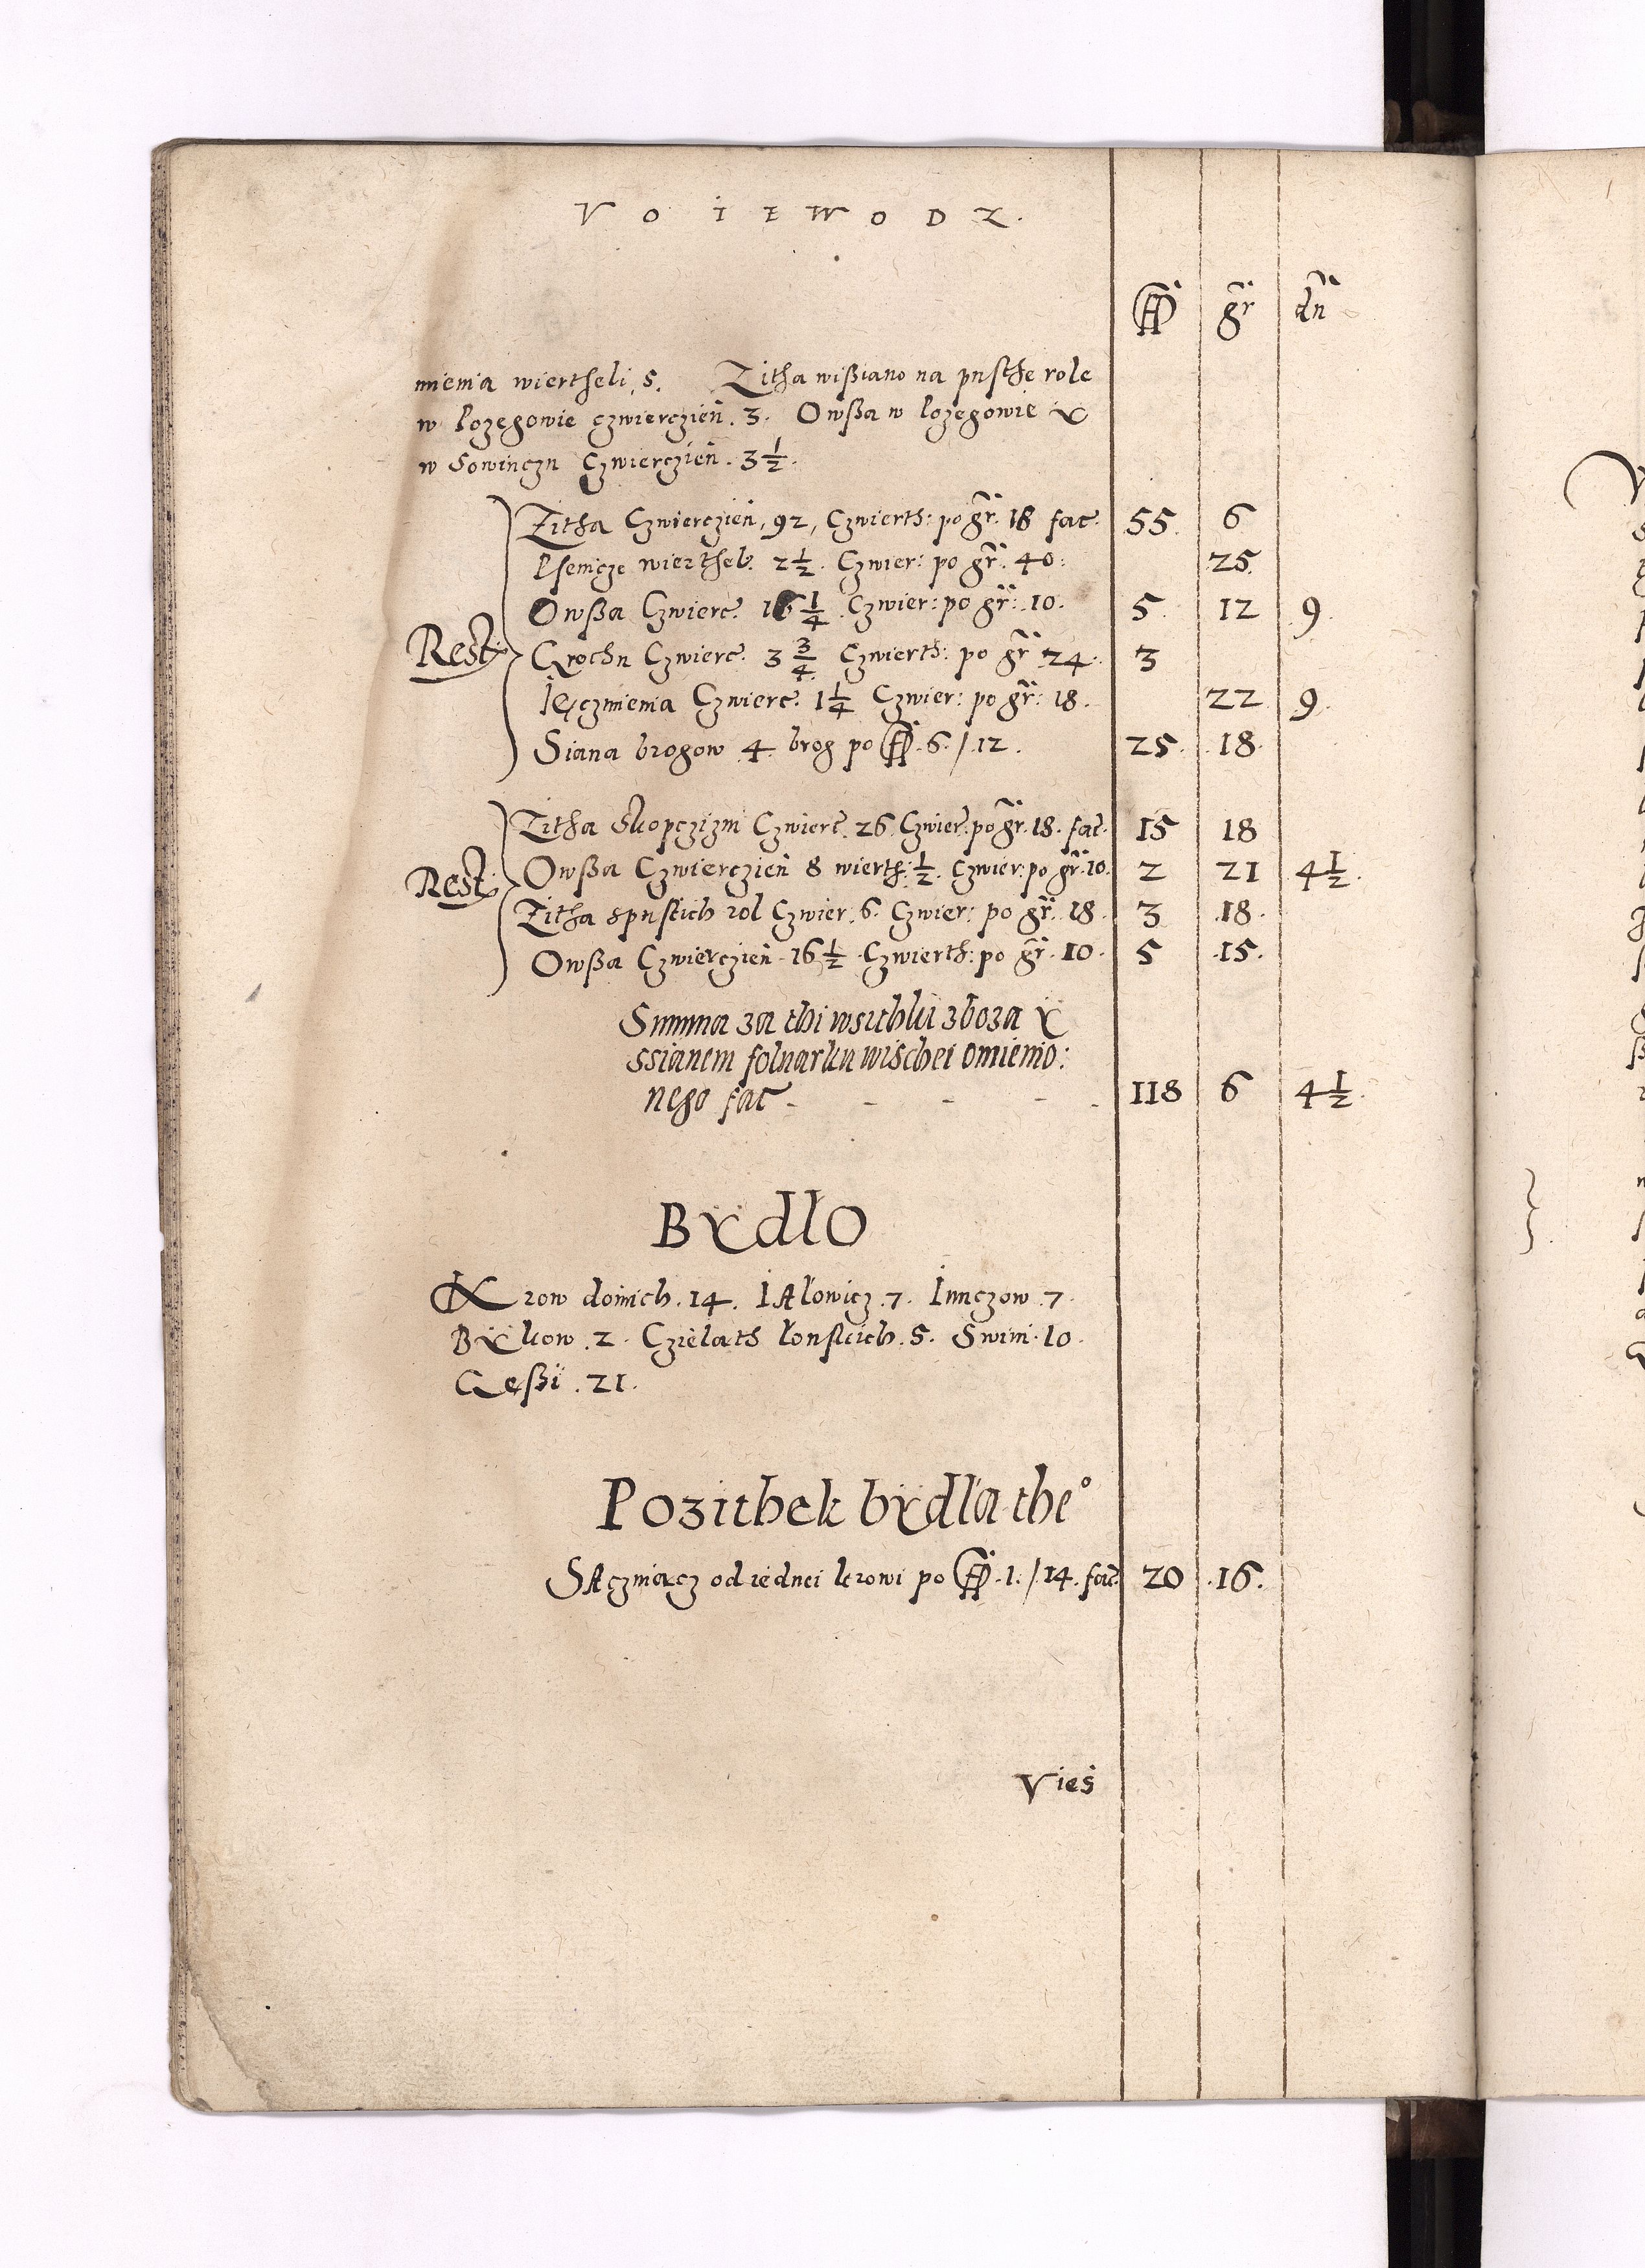 VOIEWODZ.
gr dn
mienia wiertheli 5. Zitha wißiano na pusthe role
w Pozegowie czwierczien. 3. Owßa w Pozegowie y
w Sowinczu Czwierczien. 3 1/2.
Zitha Czwierczien, 92, Czwierth: po gr. 18 fac: 55. 6
Psenicze wierthel. 2 1/2. Czwier: po gr: 40: 25
Owßa Czwierc. 16 1/4 Czwier: po gr: 10. 5. 12 9.
Rest: Grochu Czwierc: 3 3/4 Czwierth: po gr 24. 3
Ięczmienia Czwierc: 1 1/4 Czwier: po gr: 18. 22 9.
Siana brogow 4 brog po 6./12. 25. 18.
Zitha Skopczizni Czwierc. 26 Czwier: po gr. 18. fac. 15 18
Rest: Owßa Czwierczien 8 wierth: 1/2. Czwier: po gr. 10. 2 21 4 1/2.
Zitha spustich rol Czwier. 6. Czwier: po gr. 18. 3 18.
Owßa Czwierczien 16 1/2 Czwierth: po gr. 10. 5 15.
Summa za thi wsithki zboza y
ssianem folwarku wischei omienio:
nego fac - - - - 118 6 4 1/2.
Bydło
Krow doinich. 14. Iałowicz. 7. Iunczow. 7.
Bykow. 2. Czielath łonskich. 5. Swini. 10.
Gęßi. 21.
Pozithek bydła the°
Saczuiącz od iednei krowi po 1./14. fac. 20 16.
Vies